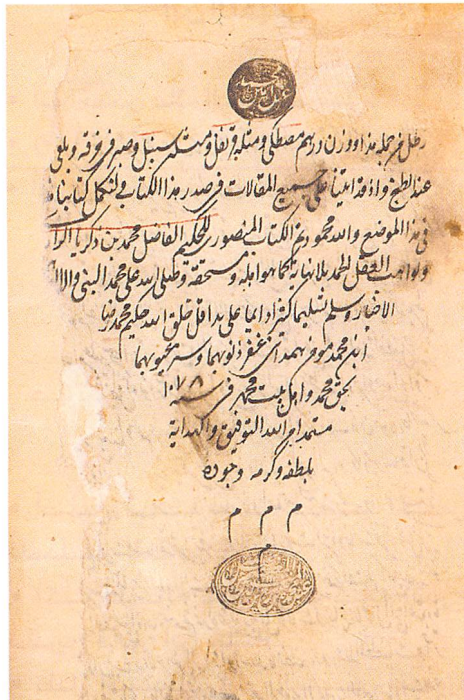 رطل من جملة هذا ووزن درهم مصطكى ومثله قرنفل ومثله سنبل وصير في خرقة ويلقى
عند الطبخ واذ قد اتينا على جميع المقالات في صدر هذا الكتاب فلنكمل كتابنا
في هذا الموضع والله محمود تم الكتاب المنصوري للحكيم الفاضل محمد بن زكريا الرازي
ولواهب العقل الحمد بلا نهاية كما هو اهله ومستحقه وصلى الله على محمد النبي واله
الاخيار وسلم تسليما كثيرا دايما على يد اقل خلق الله حليم محمد رضا
ابن محمد مومن همداني غفر ذنوبهما وستر عيوبهما
بحق محمد واهل بيت محمد في سنه ١٠٧٨
مستمدا من الله التوفيق والهداية
بلطفه وكرمه وجوده
م م م
م